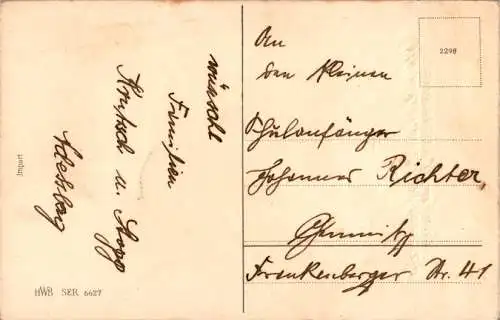 wünscht
Familien
u.
An
den kleinen
Schulanfänger
Johannes Richter,
Chemnitz
Frankenberger Str. 41
2298
Import
HWB SER 6627